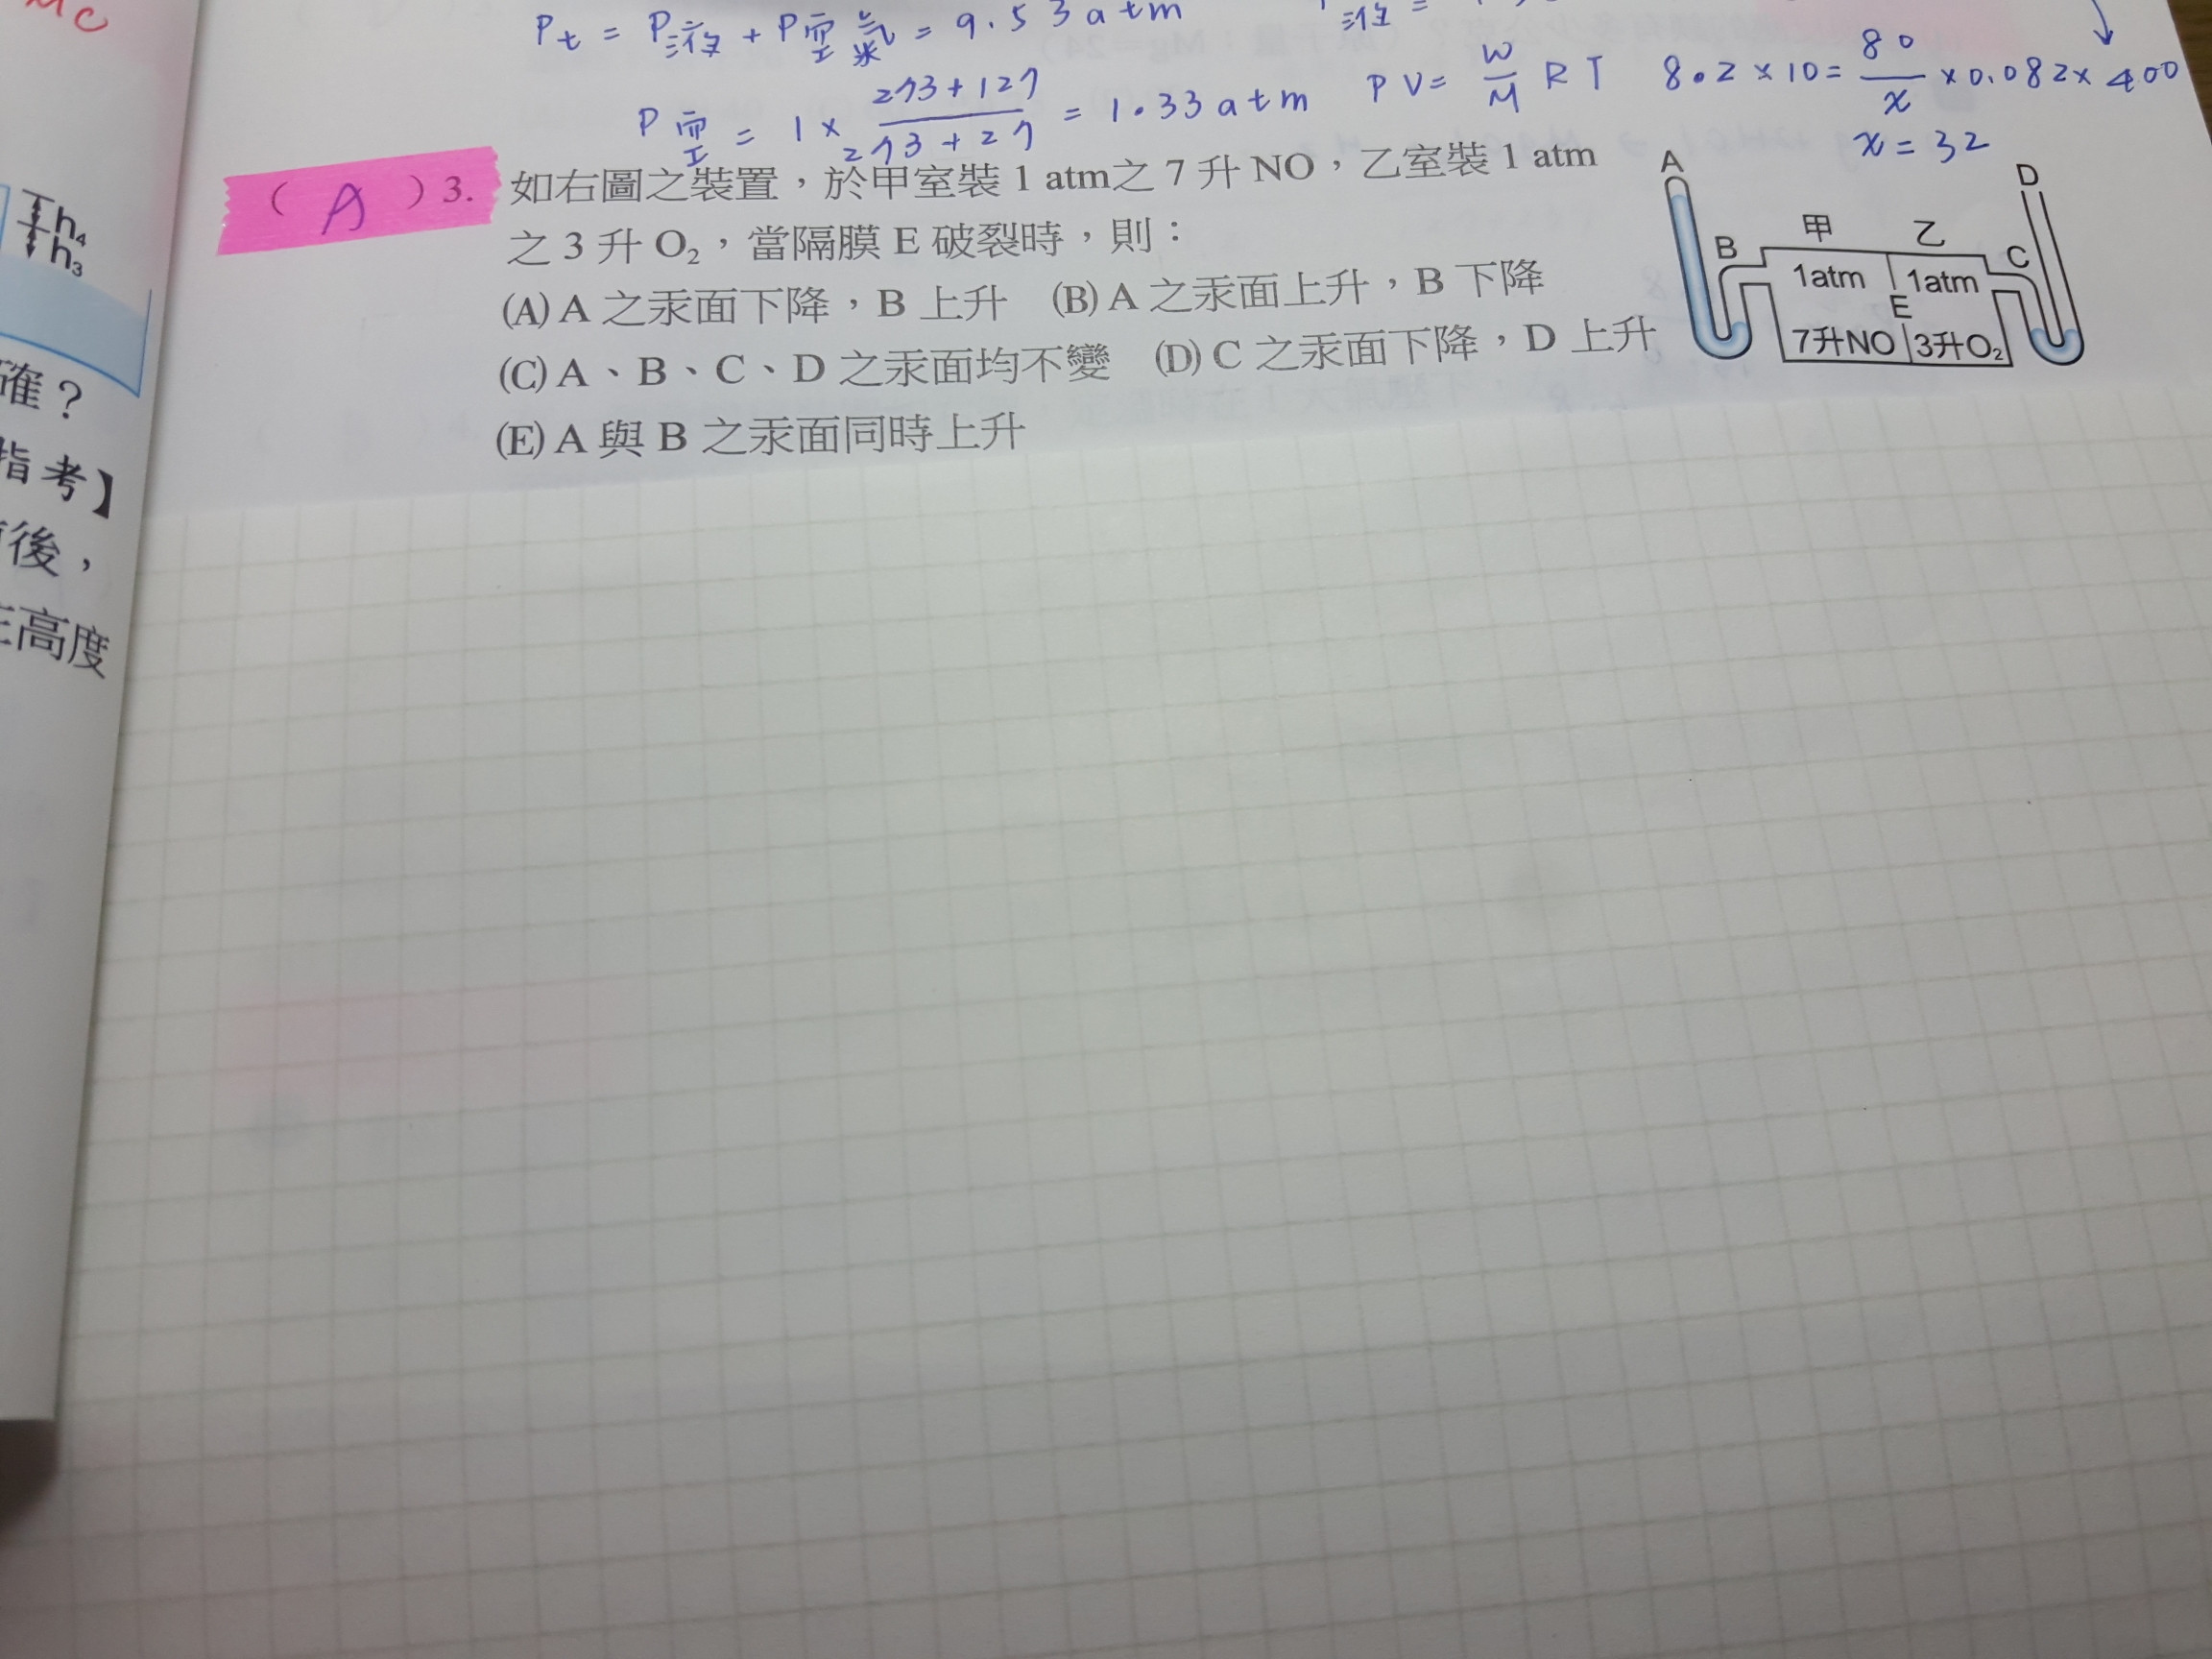 MC
h₄
h₃
確？
指考】
後，
高度
Pt = P液 + P空氣 = 9.53 atm
P空 = 1 × (273+127)/(273+27) = 1.33 atm
PV = W/M RT 8.2 × 10 = 80/x × 0.082 × 400
x = 32
( A ) 3. 如右圖之裝置，於甲室裝 1 atm之 7 升 NO，乙室裝 1 atm
之 3 升 O₂，當隔膜 E 破裂時，則：
(A) A 之汞面下降，B 上升 (B) A 之汞面上升，B 下降
(C) A、B、C、D 之汞面均不變 (D) C 之汞面下降，D 上升
(E) A 與 B 之汞面同時上升
A
D
B
甲
乙
C
1atm
1atm
E
7升NO
3升O₂